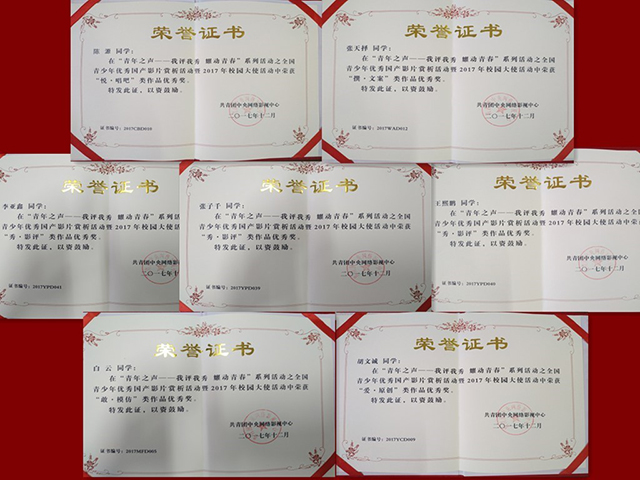 荣誉证书
陈源 同学：
在“青年之声——我评我秀 耀动青春”系列活动之全国
青少年优秀国产影片赏析活动暨2017年校园大使活动中荣获
“悦·唱吧”类作品优秀奖。
特发此证，以资鼓励。
共青团中央网络影视中心
二〇一七年十二月
证书编号：2017CBD010
荣誉证书
张天择 同学：
在“青年之声——我评我秀 耀动青春”系列活动之全国
青少年优秀国产影片赏析活动暨2017年校园大使活动中荣获
“撰·文案”类作品优秀奖。
特发此证，以资鼓励。
共青团中央网络影视中心
二〇一七年十二月
证书编号：2017WAD012
荣誉证书
李亚鑫 同学：
在“青年之声——我评我秀 耀动青春”系列活动之全国
青少年优秀国产影片赏析活动暨2017年校园大使活动中荣获
“秀·影评”类作品优秀奖。
特发此证，以资鼓励。
共青团中央网络影视中心
二〇一七年十二月
证书编号：2017YPD041
荣誉证书
张子千 同学：
在“青年之声——我评我秀 耀动青春”系列活动之全国
青少年优秀国产影片赏析活动暨2017年校园大使活动中荣获
“秀·影评”类作品优秀奖。
特发此证，以资鼓励。
共青团中央网络影视中心
二〇一七年十二月
证书编号：2017YPD039
荣誉证书
王熙鹏 同学：
在“青年之声——我评我秀 耀动青春”系列活动之全国
青少年优秀国产影片赏析活动暨2017年校园大使活动中荣获
“秀·影评”类作品优秀奖。
特发此证，以资鼓励。
共青团中央网络影视中心
二〇一七年十二月
证书编号：2017YPD040
荣誉证书
白云 同学：
在“青年之声——我评我秀 耀动青春”系列活动之全国
青少年优秀国产影片赏析活动暨2017年校园大使活动中荣获
“敢·模仿”类作品优秀奖。
特发此证，以资鼓励。
共青团中央网络影视中心
二〇一七年十二月
证书编号：2017MFD005
荣誉证书
胡文诚 同学：
在“青年之声——我评我秀 耀动青春”系列活动之全国
青少年优秀国产影片赏析活动暨2017年校园大使活动中荣获
“爱·原创”类作品优秀奖。
特发此证，以资鼓励。
共青团中央网络影视中心
二〇一七年十二月
证书编号：2017YCD009